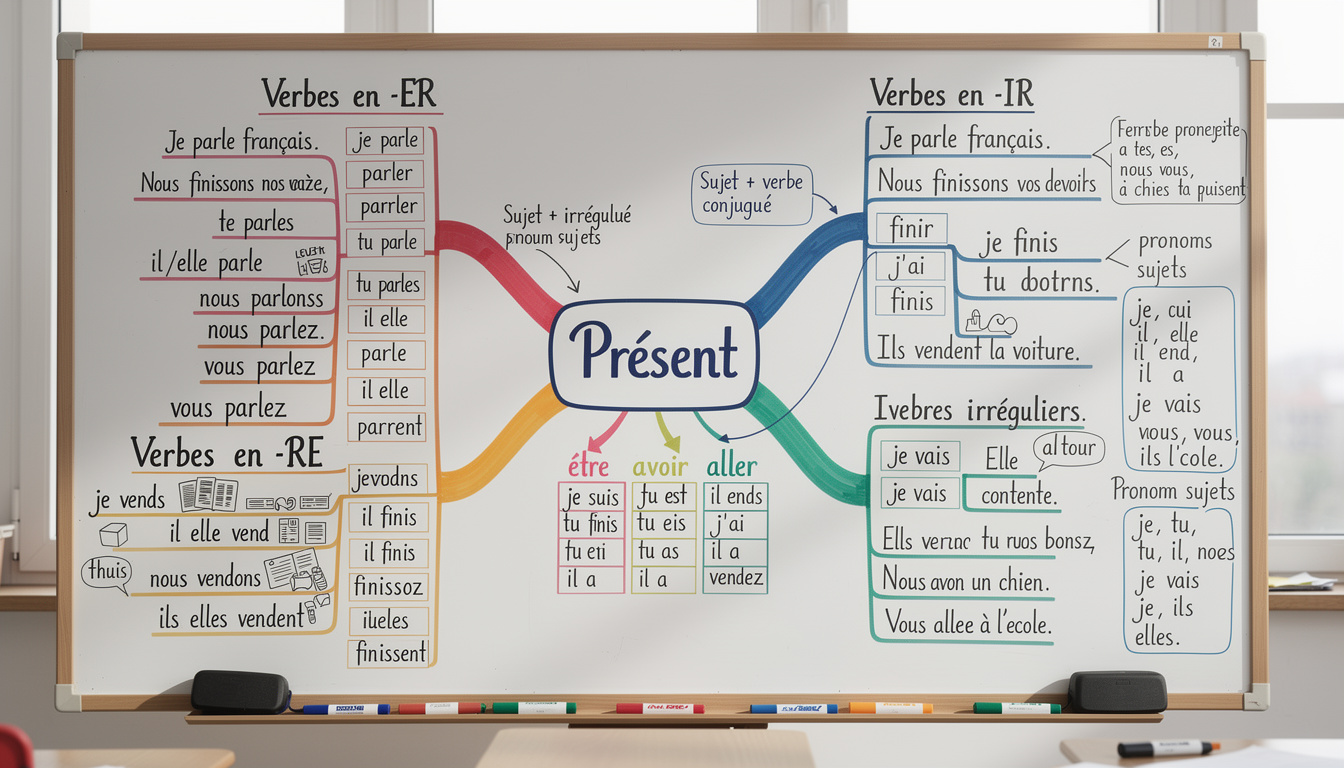 Verbes en -ER
Je parle français.
Nous finissons nos
te parles
il/elle parle
nous parlonss
nous parlez.
vous parlez
vous parlez
je parle
parler
parrler
tu parle
tu parles
il elle
parle
il elle
parrent
Verbes en -RE
je vends
il elle vend
thuis
nous vendons
ils elles vendent
jevodns
il finis
il finis
finissoz
iıueles
finissent
Sujet + irrégulué
pnoum sujets
Sujet + verbe
conjugué
Présent
étre
je suis
tu finis
tu eri
il a
avoir
tu est
tu eis
tu as
il a
aller
il ends
j'ai
il a
vendez
Verbes en -IR
Je parle français.
Nous finissons vos devoirs
finir
j'ai
finis
je finis
tu dbotrns.
Ils vendent la voiture.
a tes, es,
nous vous,
à chies ta puisent
pronoms
sujets
je, cui
il, elle
il end,
il a
je vais
vous, vous,
ils l'cole.
Ivebres irréguliers.
je vais
je vais
Elle
contente.
al tour
Ells verınc tu ruos bonsz,
Nous avon un chien.
Vous allee à l'ecole.
Pronom sujets
je, tu,
tu, il, noes
je vais
je, ils
elles.